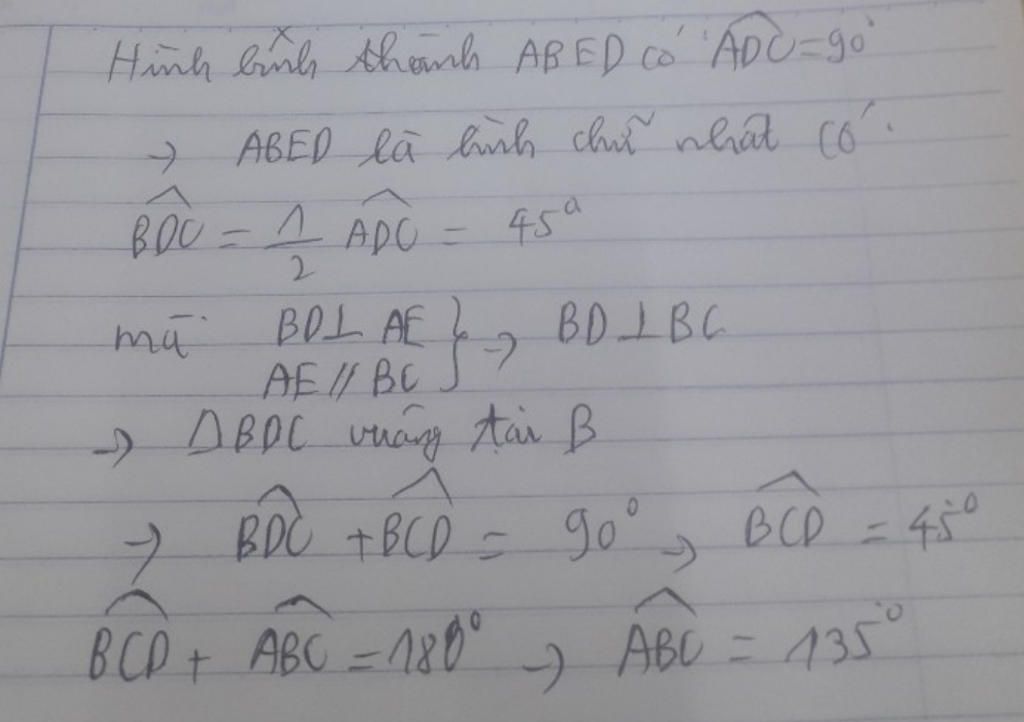 Hình bình thành ABED có \widehat{ADC} = 90°
→ ABED là hình chữ nhật có
\widehat{BDC} = 1/2 \widehat{ADC} = 45°
mà BD ⊥ AE } → BD ⊥ BC
AE // BC
→ ΔBDC vuông tại B
→ \widehat{BDC} + \widehat{BCD} = 90° → \widehat{BCD} = 45°
\widehat{BCD} + \widehat{ABC} = 180° → \widehat{ABC} = 135°